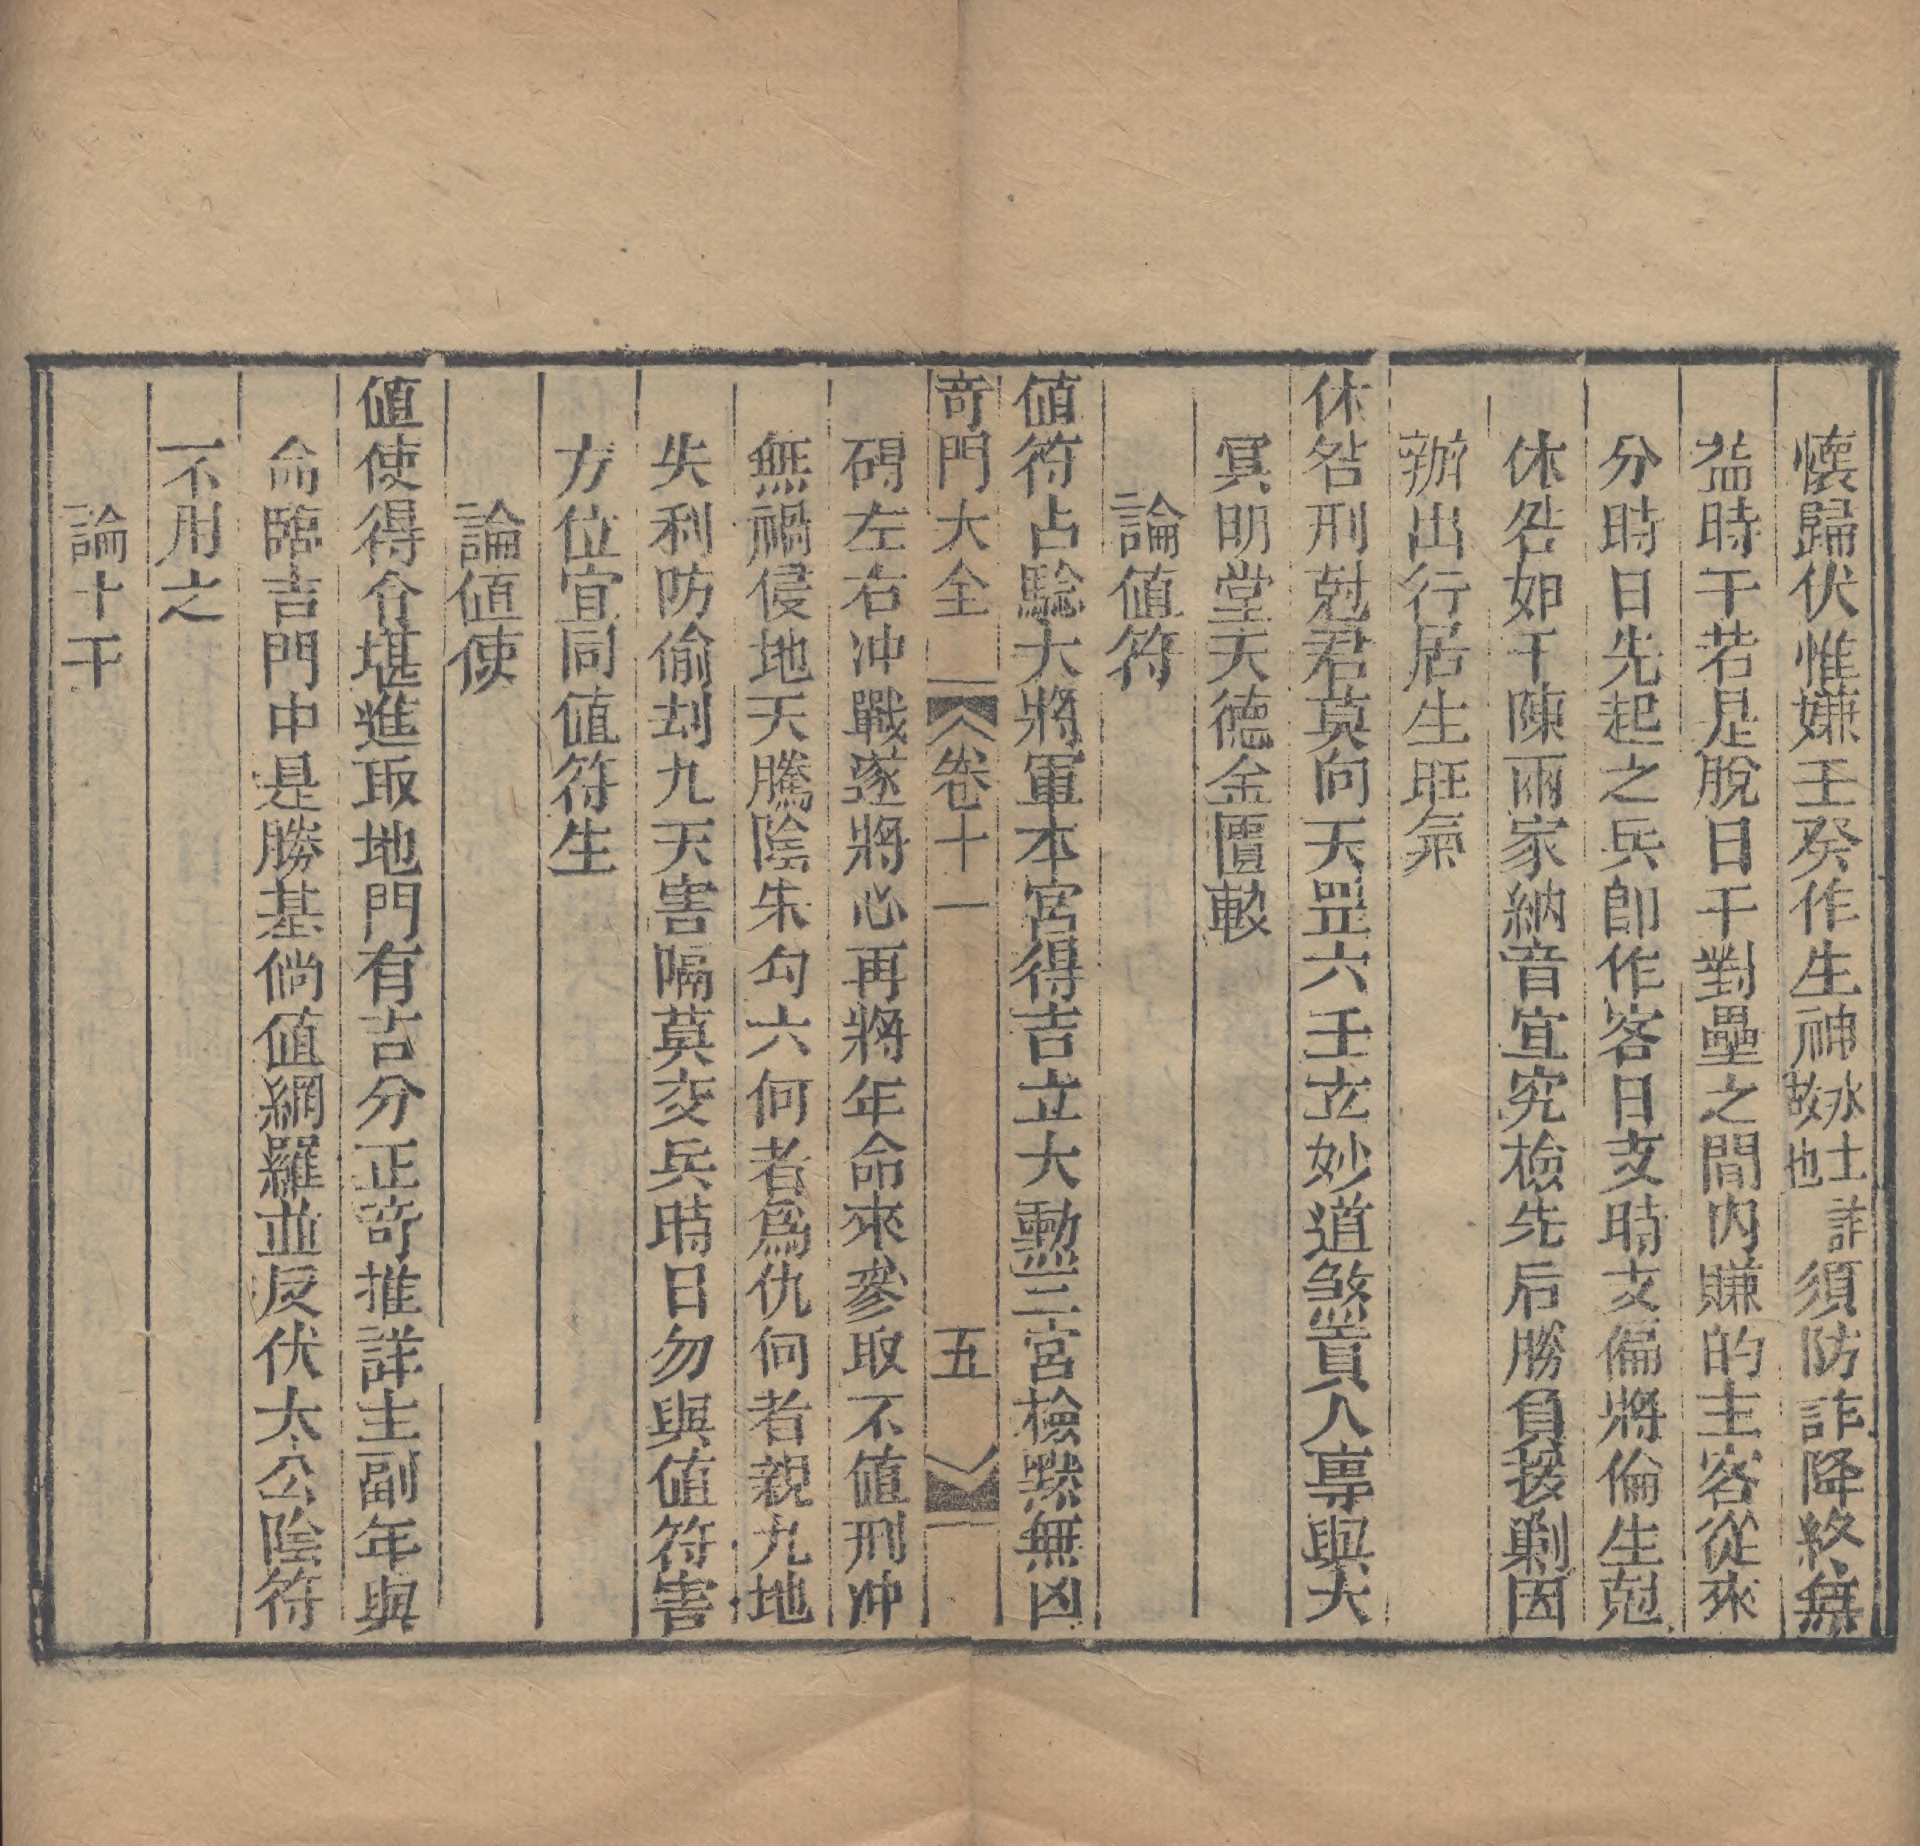 懷歸伏惟嫌壬癸作生神水土詳故也須防詐降終無
益時干若是脫日干對壘之間内賺的主客從來
分時日先起之兵卽作客日支時支偏將倫生尅
休咎如干陳兩家納音宜究檢先后勝負接剿因
辦出行居生旺氣
休咎刑尅君莫向天罡六壬玄妙道煞貢人專與大
冥明堂天德金匱
論值符
值符占驗大將軍本宮得吉立大勳三宮檢㸃無凶
奇門大全 卷十一 五
碍左右冲戰遂將心再將年命來參取不值刑冲
無禍侵地天騰陰朱勾六何者爲仇何者親九地
失利防偷刦九天害隔莫交兵時日勿與值符害
方位宜同值符生
論值使
值使得合堪進取地門有吉分正奇推詳主副年與
命臨吉門中是勝基倘值網羅並反伏太公陰符
不用之
論十干